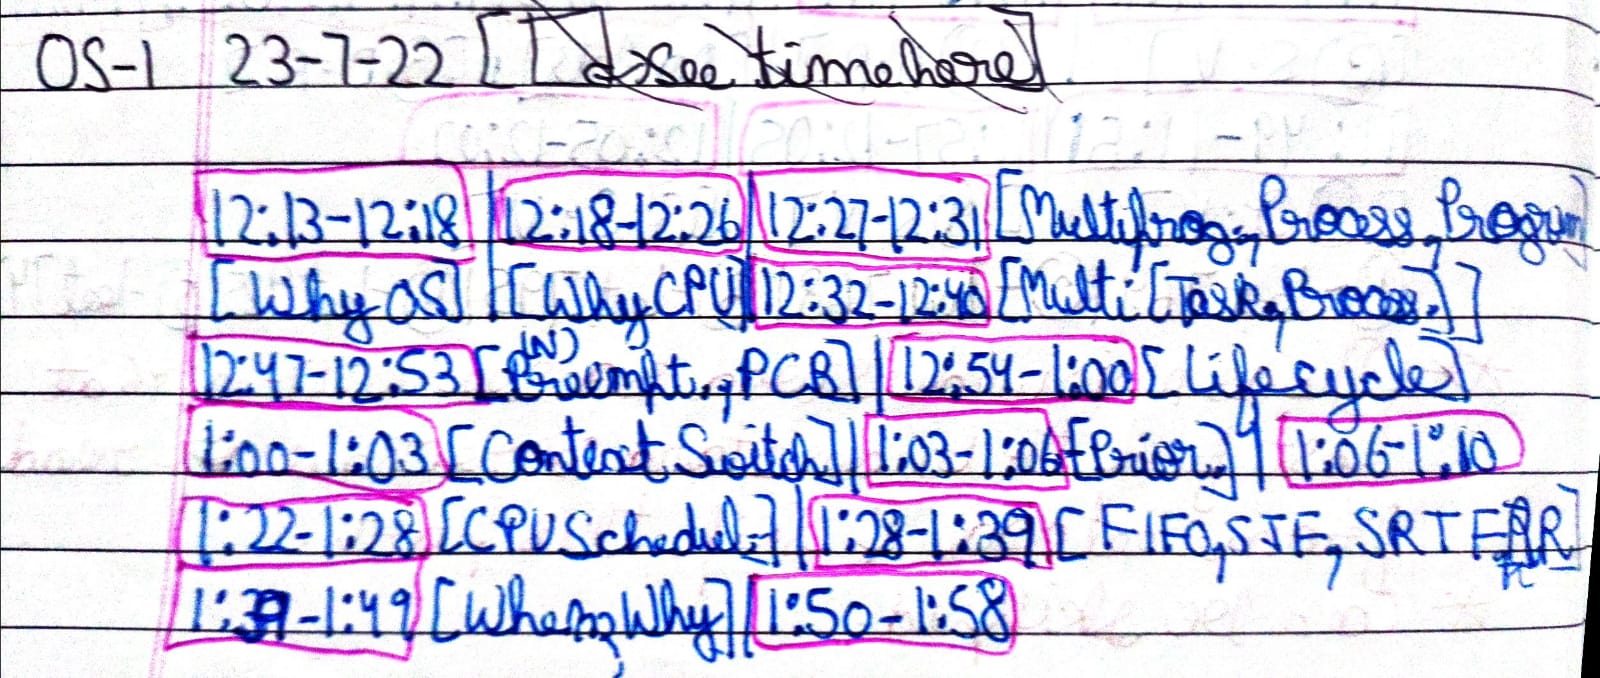 OS-1 23-7-22 [I d see time here]
12:13-12:18 | 12:18-12:26 | 12:27-12:31 [Multiprog., Process, Progrm]
[Why OS] | [Why CPU] | 12:32-12:40 [Multi [Task, Process.]]
12:47-12:53 [(N) Preempt., PCB] | 12:54-1:00 [Lifecycle]
1:00-1:03 [Context Switch] | 1:03-1:06 [Prior.] | 1:06-1:10
1:22-1:28 [CPU Schedul.] | 1:28-1:39 [FIFO, SJF, SRTF, RR]
1:39-1:49 [When, Why] | 1:50-1:58